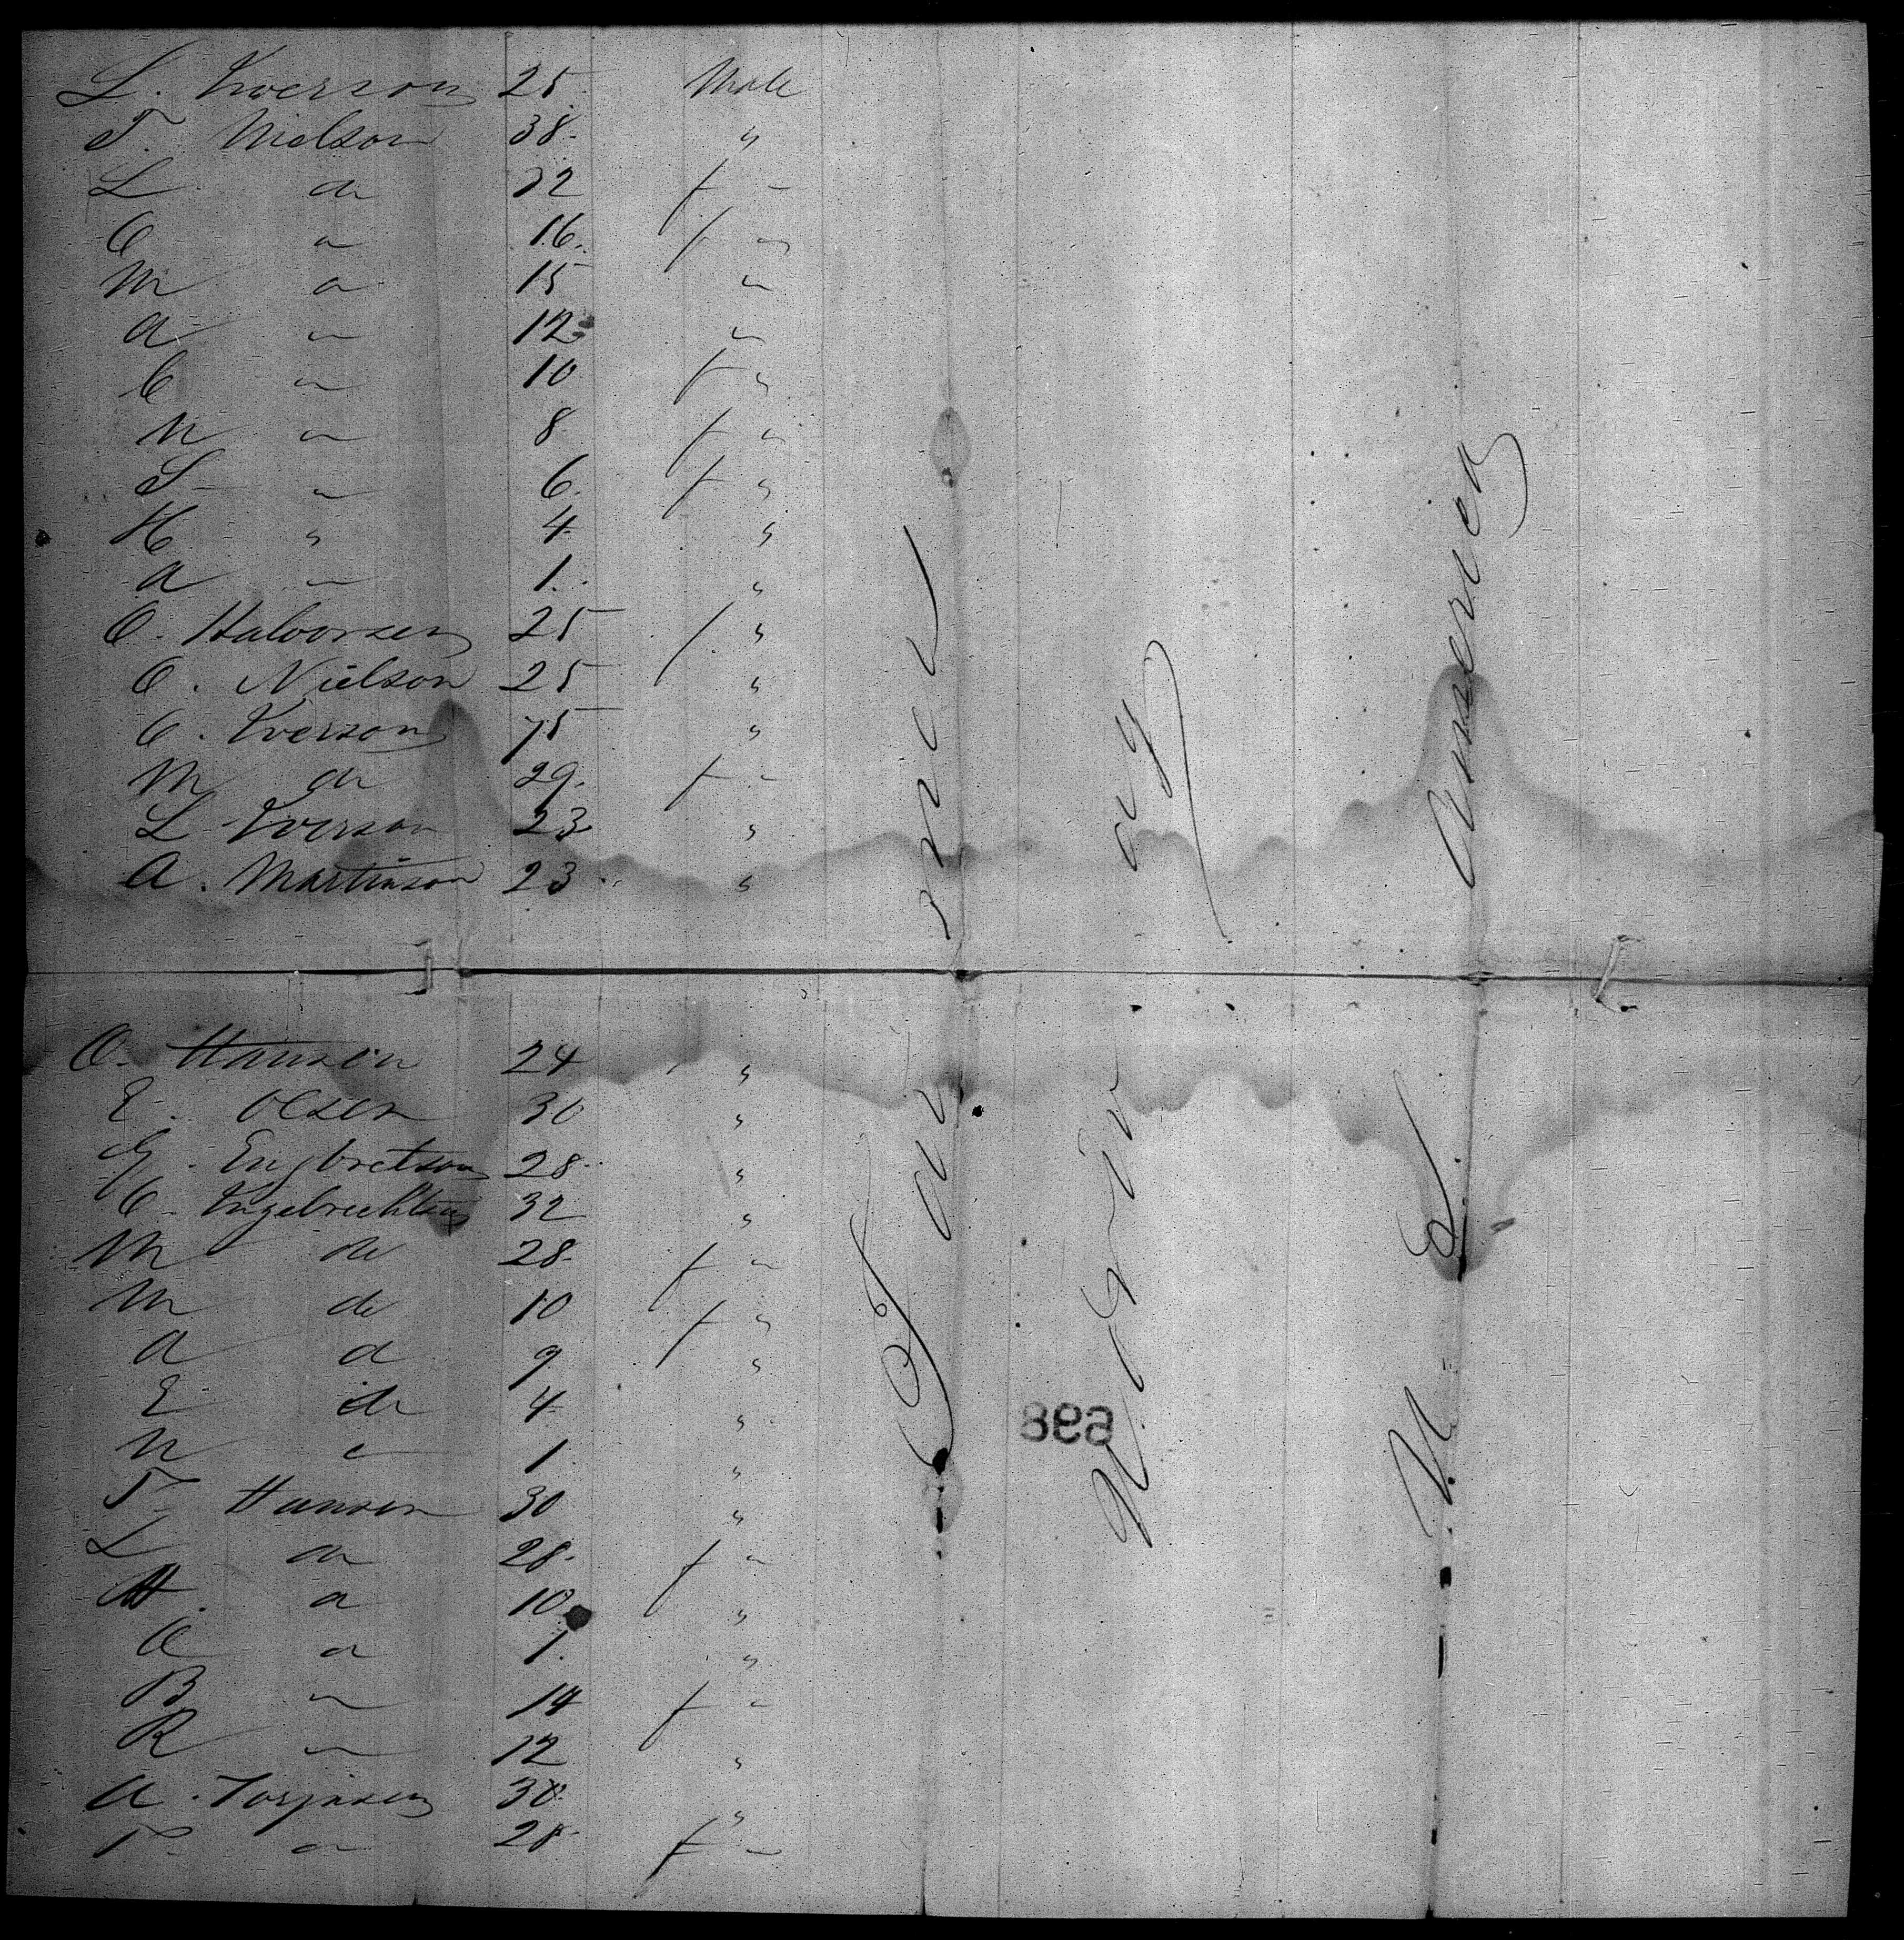 L. Iverson 25 Male
T. Nielson 38 "
L do 32 f "
O " 16 f "
M " 15 "
A " 12 "
C " 10 f "
N " 8 f "
S " 6 f "
H " 4 "
A " 1 "
O. Halvorsen 25 "
O. Nielson 25 "
O. Iverson 75 "
M do 29 f "
L Iverson 23 "
A. Martinson 23 "
O. Hansen 24 "
E. Olsen 30 "
G. Engbretson 28 "
C. Ingebrechtsen 32 "
M do 28 f "
M do 10 f "
A d 9 "
E do 4 "
N " 1 "
T. Hansen 30 "
L do 28 f "
H. " 10 "
O " 1 "
B " 14 f "
R " 12 "
A. 38 "
T " 28 f "
Norway
U S America
698